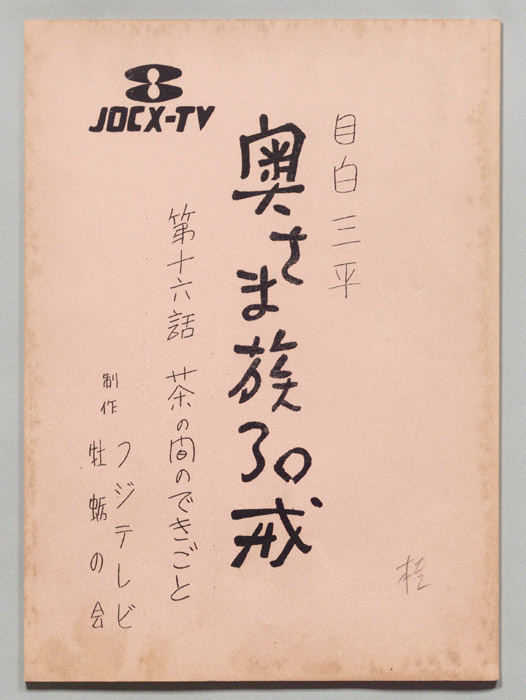 JOCX-TV
目白三平
奥さま族30戒
第十六話 茶の間のできごと
制作 フジテレビ
牡蛎の会
桂